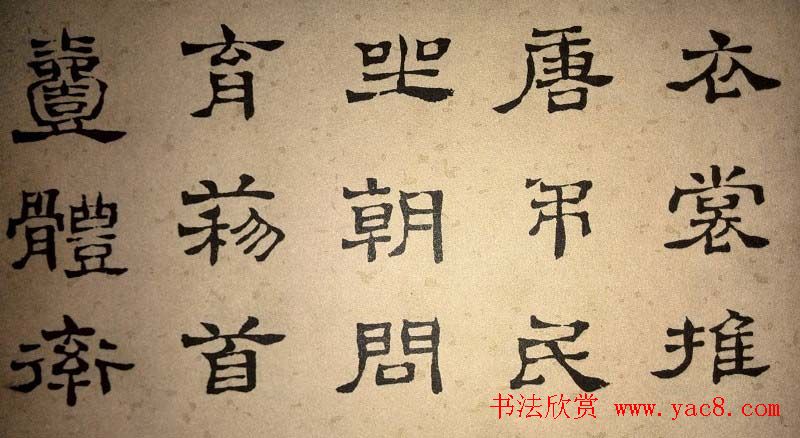 衣裳推
唐吊民
坐朝問
育黎首
壹體率
书法欣赏 www.yac8.com